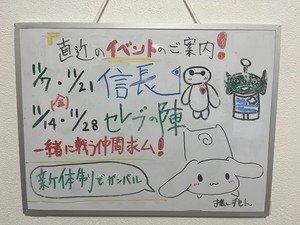 『直近のイベントのご案内!
11/7・11/21 信長
(金)
11/14・11/28 セレブの陣
一緒に戦う仲間求ム!
新体制でガンバル